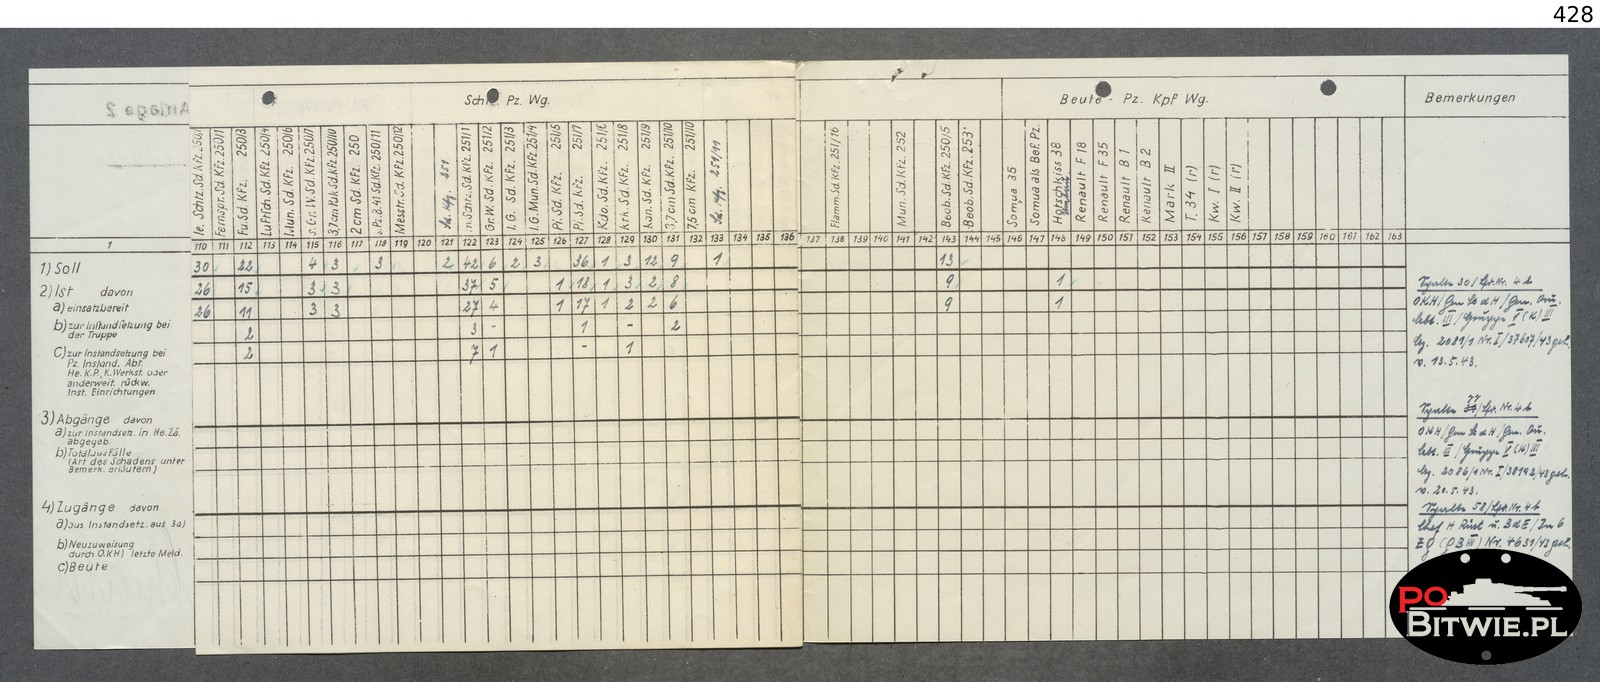 428
Anlage 2
Schtz. Pz. Wg.
Beute - Pz. Kpf Wg.
Bemerkungen
le. Schtz. Sd. Kfz. 250/1
Fernspr. Sd. Kfz. 250/1
Fu. Sd. Kfz. 250/3
Luftsch. Sd. Kfz. 250/4
l. Mun. Sd. Kfz. 250/6
s. Gr. W. Sd. Kfz. 250/7
3,7cm Pak Sd. Kfz. 250/10
2 cm Sd. Kfz. 250
s. Pz. B. 41 Sd. Kfz. 250/11
Messtr. Sd. Kfz. 250/12
251
m. Schtz. Sd. Kfz. 251/1
Gr. W. Sd. Kfz. 251/2
I. G. Sd. Kfz. 251/3
I. G. Mun. Sd. Kfz. 251/4
Pi. Sd. Kfz. 251/5
Pi. Sd. Kfz. 251/7
Kdo. Sd. Kfz. 251/6
Krk. Sd. Kfz. 251/8
Kan. Sd. Kfz. 251/9
3,7 cm Sd. Kfz. 251/10
7,5 cm Kfz. 251/10
251/11
Flamm. Sd. Kfz. 251/16
Mun. Sd. Kfz. 252
Beob. Sd. Kfz. 250/5
Beob. Sd. Kfz. 253
Somua 35
Somua als Bef. Pz.
Hotschkiss 38
Renault F 18
Renault F 35
Renault B 1
Renault B 2
Mark II
T. 34 (r)
Kw. I (r)
Kw. II (r)
1 110 111 112 113 114 115 116 117 118 119 120 121 122 123 124 125 126 127 128 129 130 131 132 133 134 135 136 137 138 139 140 141 142 143 144 145 146 147 148 149 150 151 152 153 154 155 156 157 158 159 160 161 162 163
1) Soll 30 22 4 3 3 2 42 6 2 3 36 1 3 12 9 1 13
2) Ist davon 26 15 3 3 37 5 1 18 1 3 2 8 9 1
a) einsatzbereit 26 11 3 3 27 4 1 17 1 2 2 6 9 1
b) zur Instandsetzung bei
der Truppe 2 3 - 1 - 2
c) zur Instandsetzung bei 2 7 1 - 1
Pz. Instand. Abt.
He. K. P., K. Werkst. oder
anderweit. rückw.
Inst. Einrichtungen
3) Abgänge davon
a) zur Instandsen. in He. Zä.
abgegeb.
b) Totalausfälle
(Art des Schadens unter
Bemerk. erläutern)
4) Zugänge davon
a) aus Instandsetz. aus 3a)
b) Neuzuweisung
durch O.K.H) letzte Meld.
c) Beute
Spalte 30 / Lfd. Nr. 4 b
OKH / Gen St d H / Gen. Qu.
Abt. III / Gruppe V (K) III
Bg. 2081/1 Nr. I / 37607/43 geh.
v. 13.5.43.
Spalte 77 / Lfd. Nr. 4 b
OKH / Gen St d H / Gen. Qu.
Abt. III / Gruppe V (K) III
Bg. 2086/1 Nr. I / 38192/43 geh.
v. 20.5.43.
Spalte 58 / Lfd. Nr. 4 b
Chef H Rüst u. B d E / In 6
Nr. 4631/43 geh.
PO
BITWIE.PL